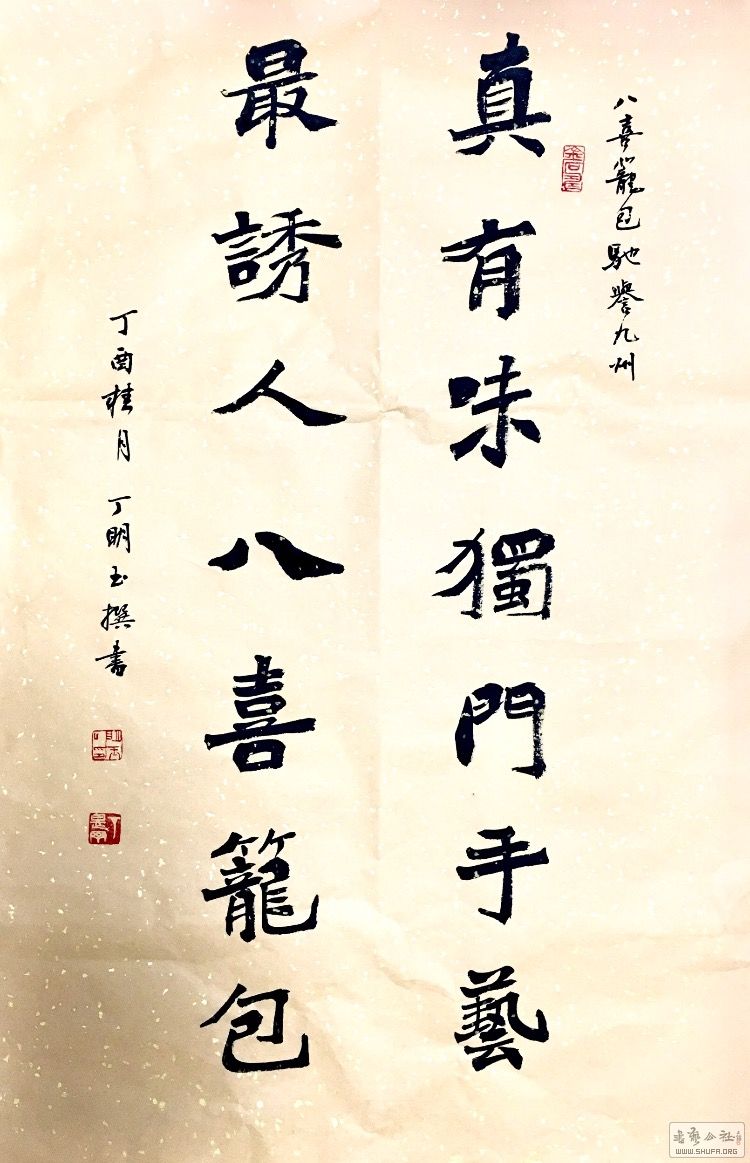 八喜籠包馳譽九州
真有味獨門手藝
最誘人八喜籠包
丁酉桂月 丁明玉撰書
書藝公社
WWW.SHUFA.ORG